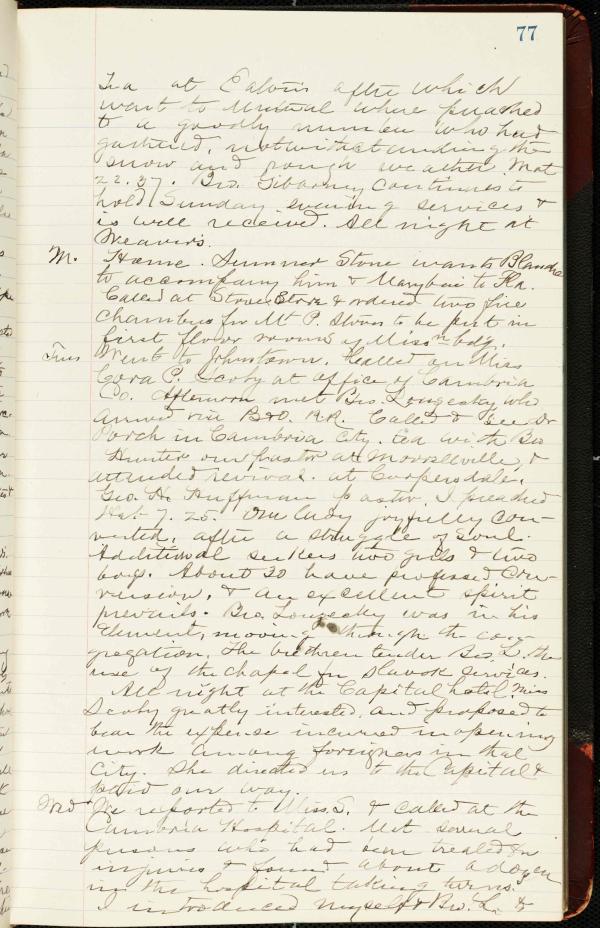 77
Tea at Eaton's after which
went to Mutual where preached
to a goodly number who had
gathered, notwithstanding the
snow and rough weather. Mat
22.37. Bro. Gibboney continues to
hold Sunday evening services &
is well received. All night at
Weaver's.
M. Home. Sumner Stone wants Blanche
to accompany him & Marybeu to Fla.
Called at Stove Store & ordered two fire
chambers for Mt. P. stoves to be put in
first floor rooms of Miss'n bdg.
Tues Went to Johnstown. Called on Miss
Cora P. Scoby at office of Cambria
Co. Afternoon met Bro. Longesky who
arrived via B&O. R.R. Called to see Dr
Porch in Cambria City. tea with Bro
Hunter our pastor at Morrellville, &
attended revival. at Coopersdale,
Geo. H. Huffman pastor. I preached
Heb 7.25. One lady joyfully con-
verted, after a struggle of soul.
Additional seekers two girls & two
boys. About 30 have professed con-
version, & an excellent spirit
prevails. Bro. Longesky was in his
element, moving through the con-
gregation. The brethren tender Bro. L. the
use of the chapel for Slavok services.
All night at the Capital hotel. Miss
Scoby greatly interested, and proposed to
bear the expense incurred in opening
work among foreigners in that
City. She directed us to the Capital &
paid our way.
Wed We reported to Miss S. & called at the
Cambria Hospital. Met several
persons who had been treated for
injuries & found about a dozen
in the hospital taking turns.
I introduced myself & Bro. L. &